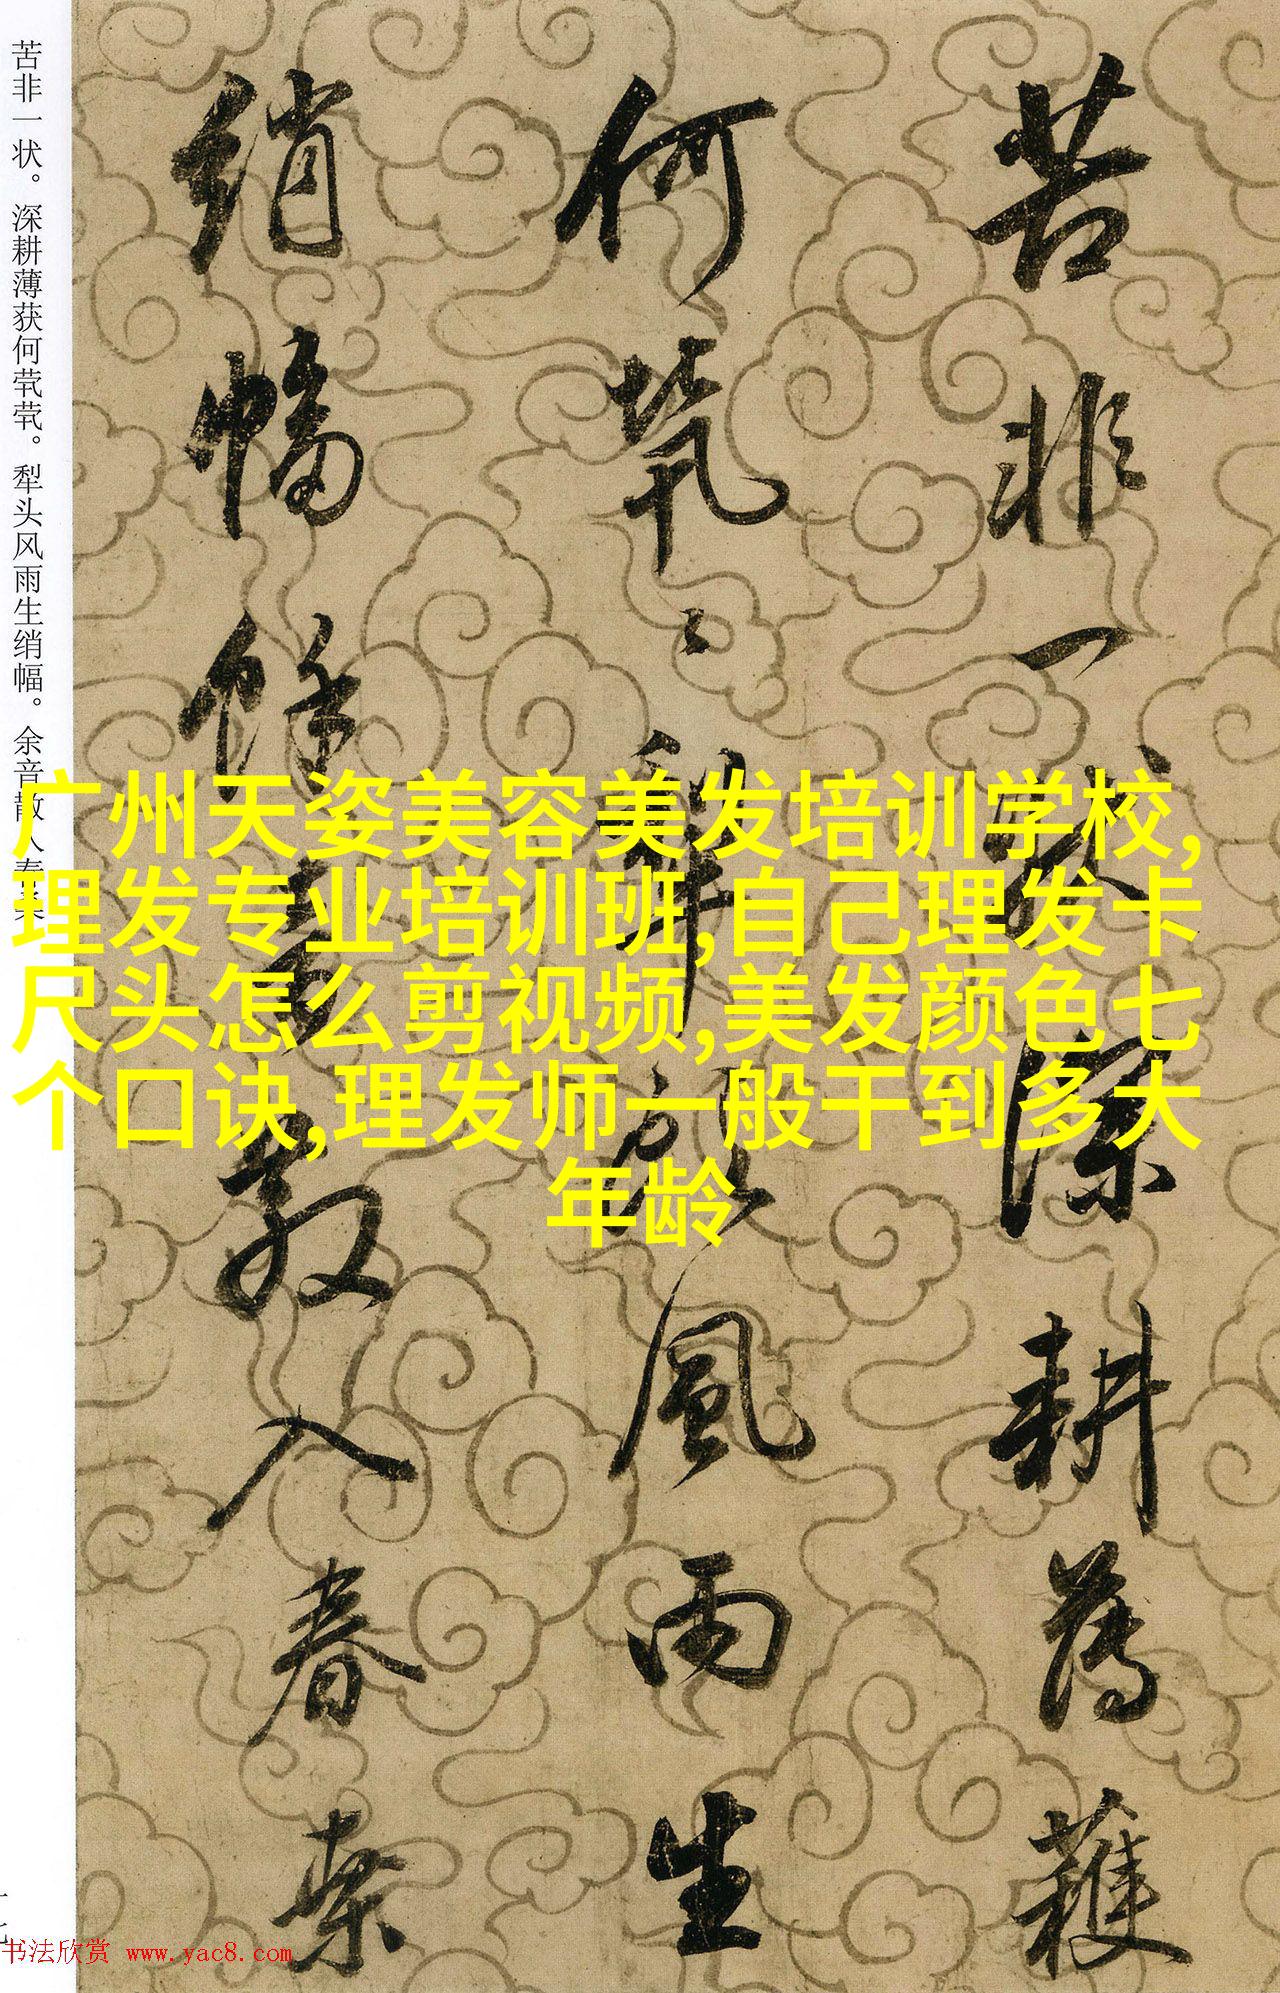 苦非一状。深耕薄获何茕茕。犁头风雨生绡幅。余音散入春
苦非一状深耕薄穫
何茕〻犁头風雨生
绡幅餘音散入春桑
广州天姿美容美发培训学校,
理发专业培训班,自己理发卡
尺头怎么剪视频,美发颜色七
个口诀,理发师一般干到多大
年龄
书法欣赏 www.yac8.com